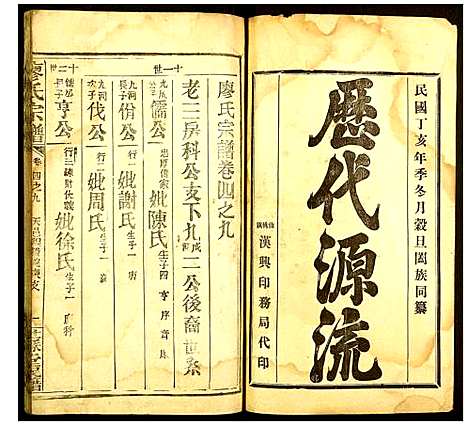 民國丁亥年季冬月穀旦闔族同纂
歷代源流
漢興印務局代印
廖氏宗譜卷四之九
老三房科公支下九成二公後裔世系
十一世
九成長子
儒公
忠厚傳家
妣陳氏
生子四
亨 序 言
九洞長子
份公
行一
妣謝氏
生子一
九洞次子
伐公
行二
妣周氏
生子一
十二世
儒長子
亨公
行三
妣徐氏
生子一
廖氏宗譜
卷四之九